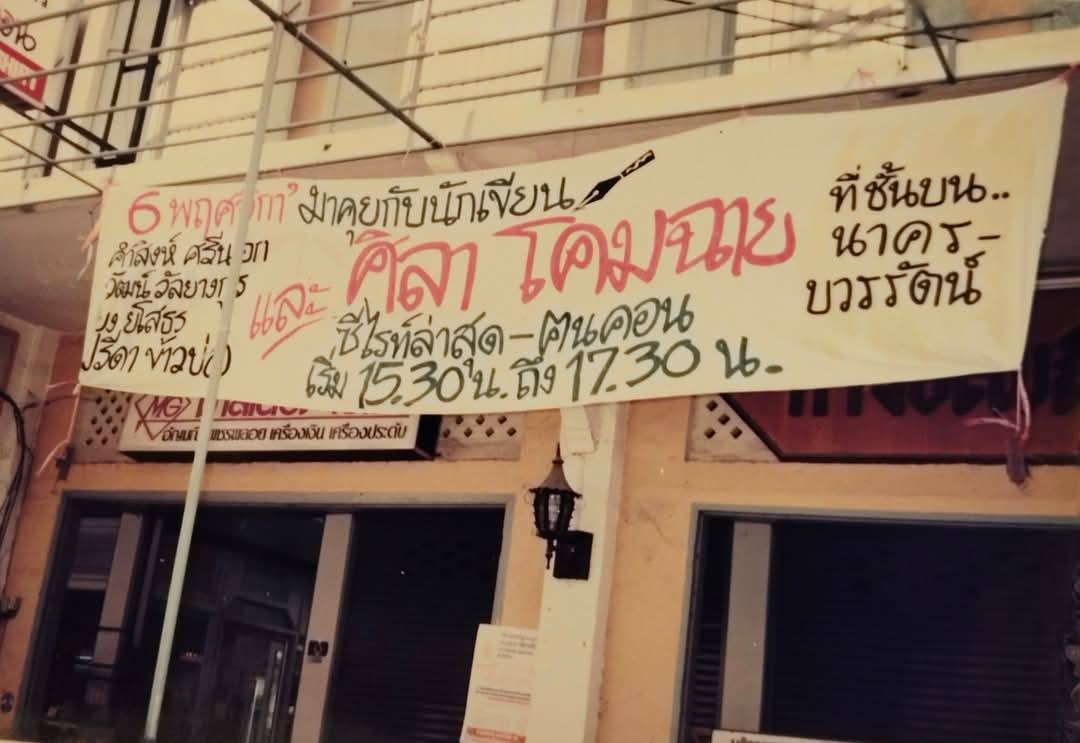 6 พฤศจิกา' มาคุยกับนักเขียน
คำสิงห์ ศรีนอก
วัฒน์ วัลยางกูร
ยโสธร
ปรีดา ข้าวบ่อ
และ ศิลา โคมฉาย
ซีไรท์ล่าสุด-ฅนคอน
เริ่ม 15.30 น. ถึง 17.30 น.
ที่ชั้นบน..
นาคร-
บวรรัตน์
MG
เครื่องเงิน เครื่องประดับ